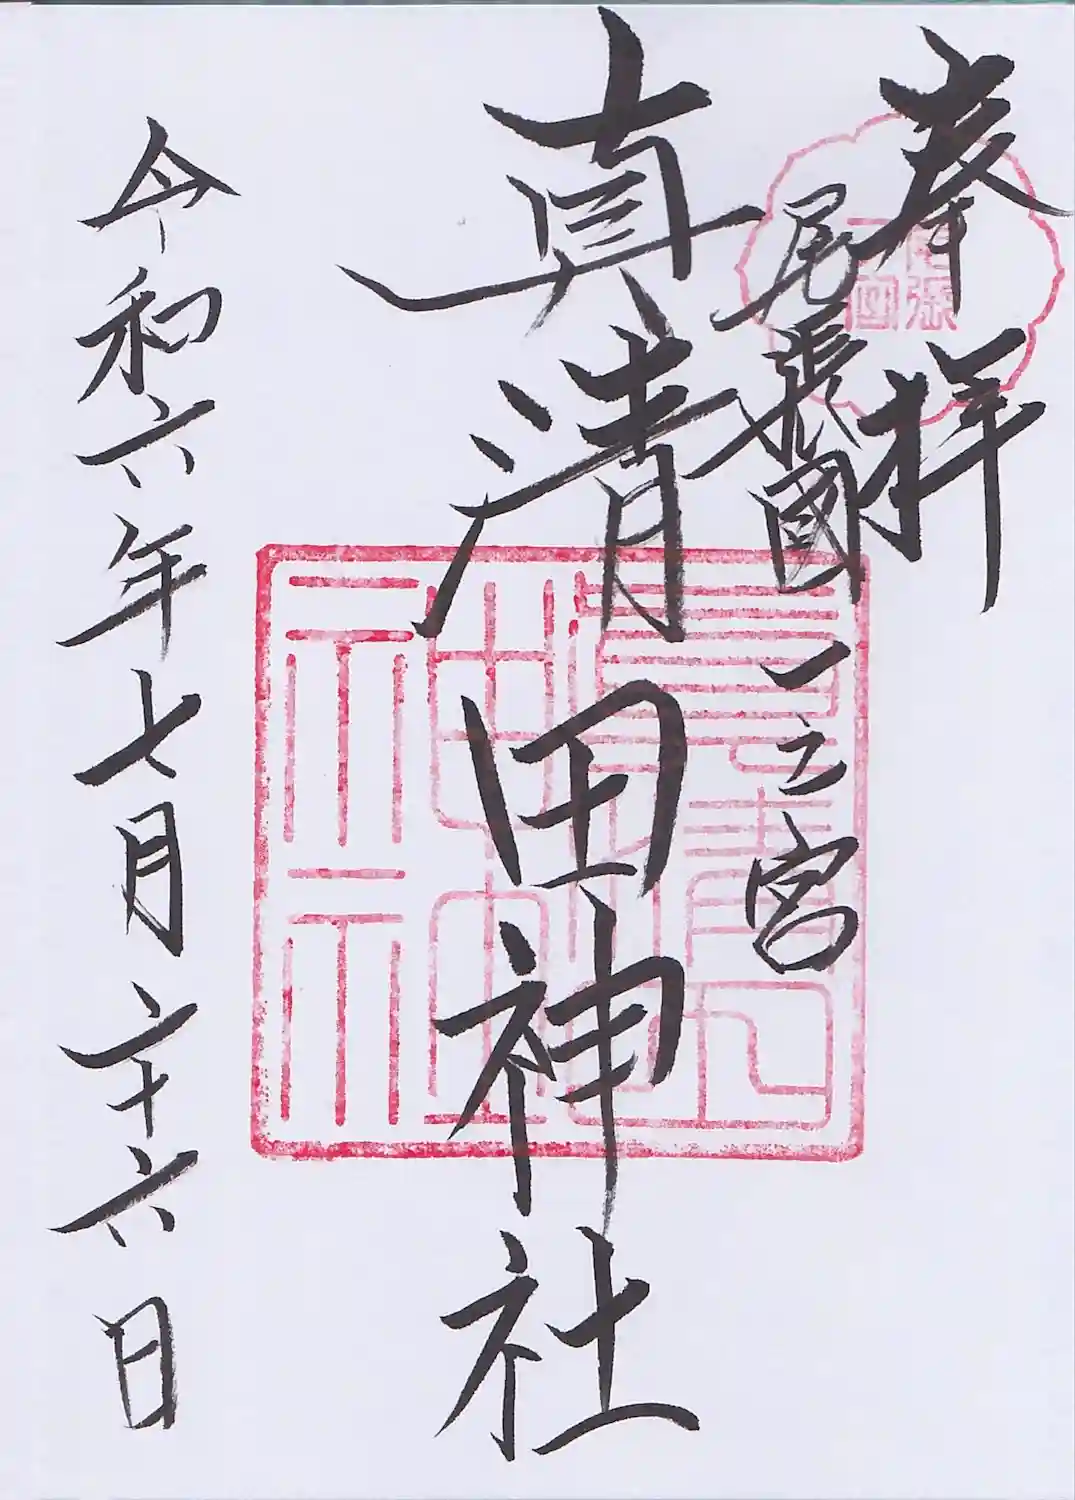 奉拝
尾張國一之宮
真清田神社
令和六年七月二十六日
尾張
真清田
神社